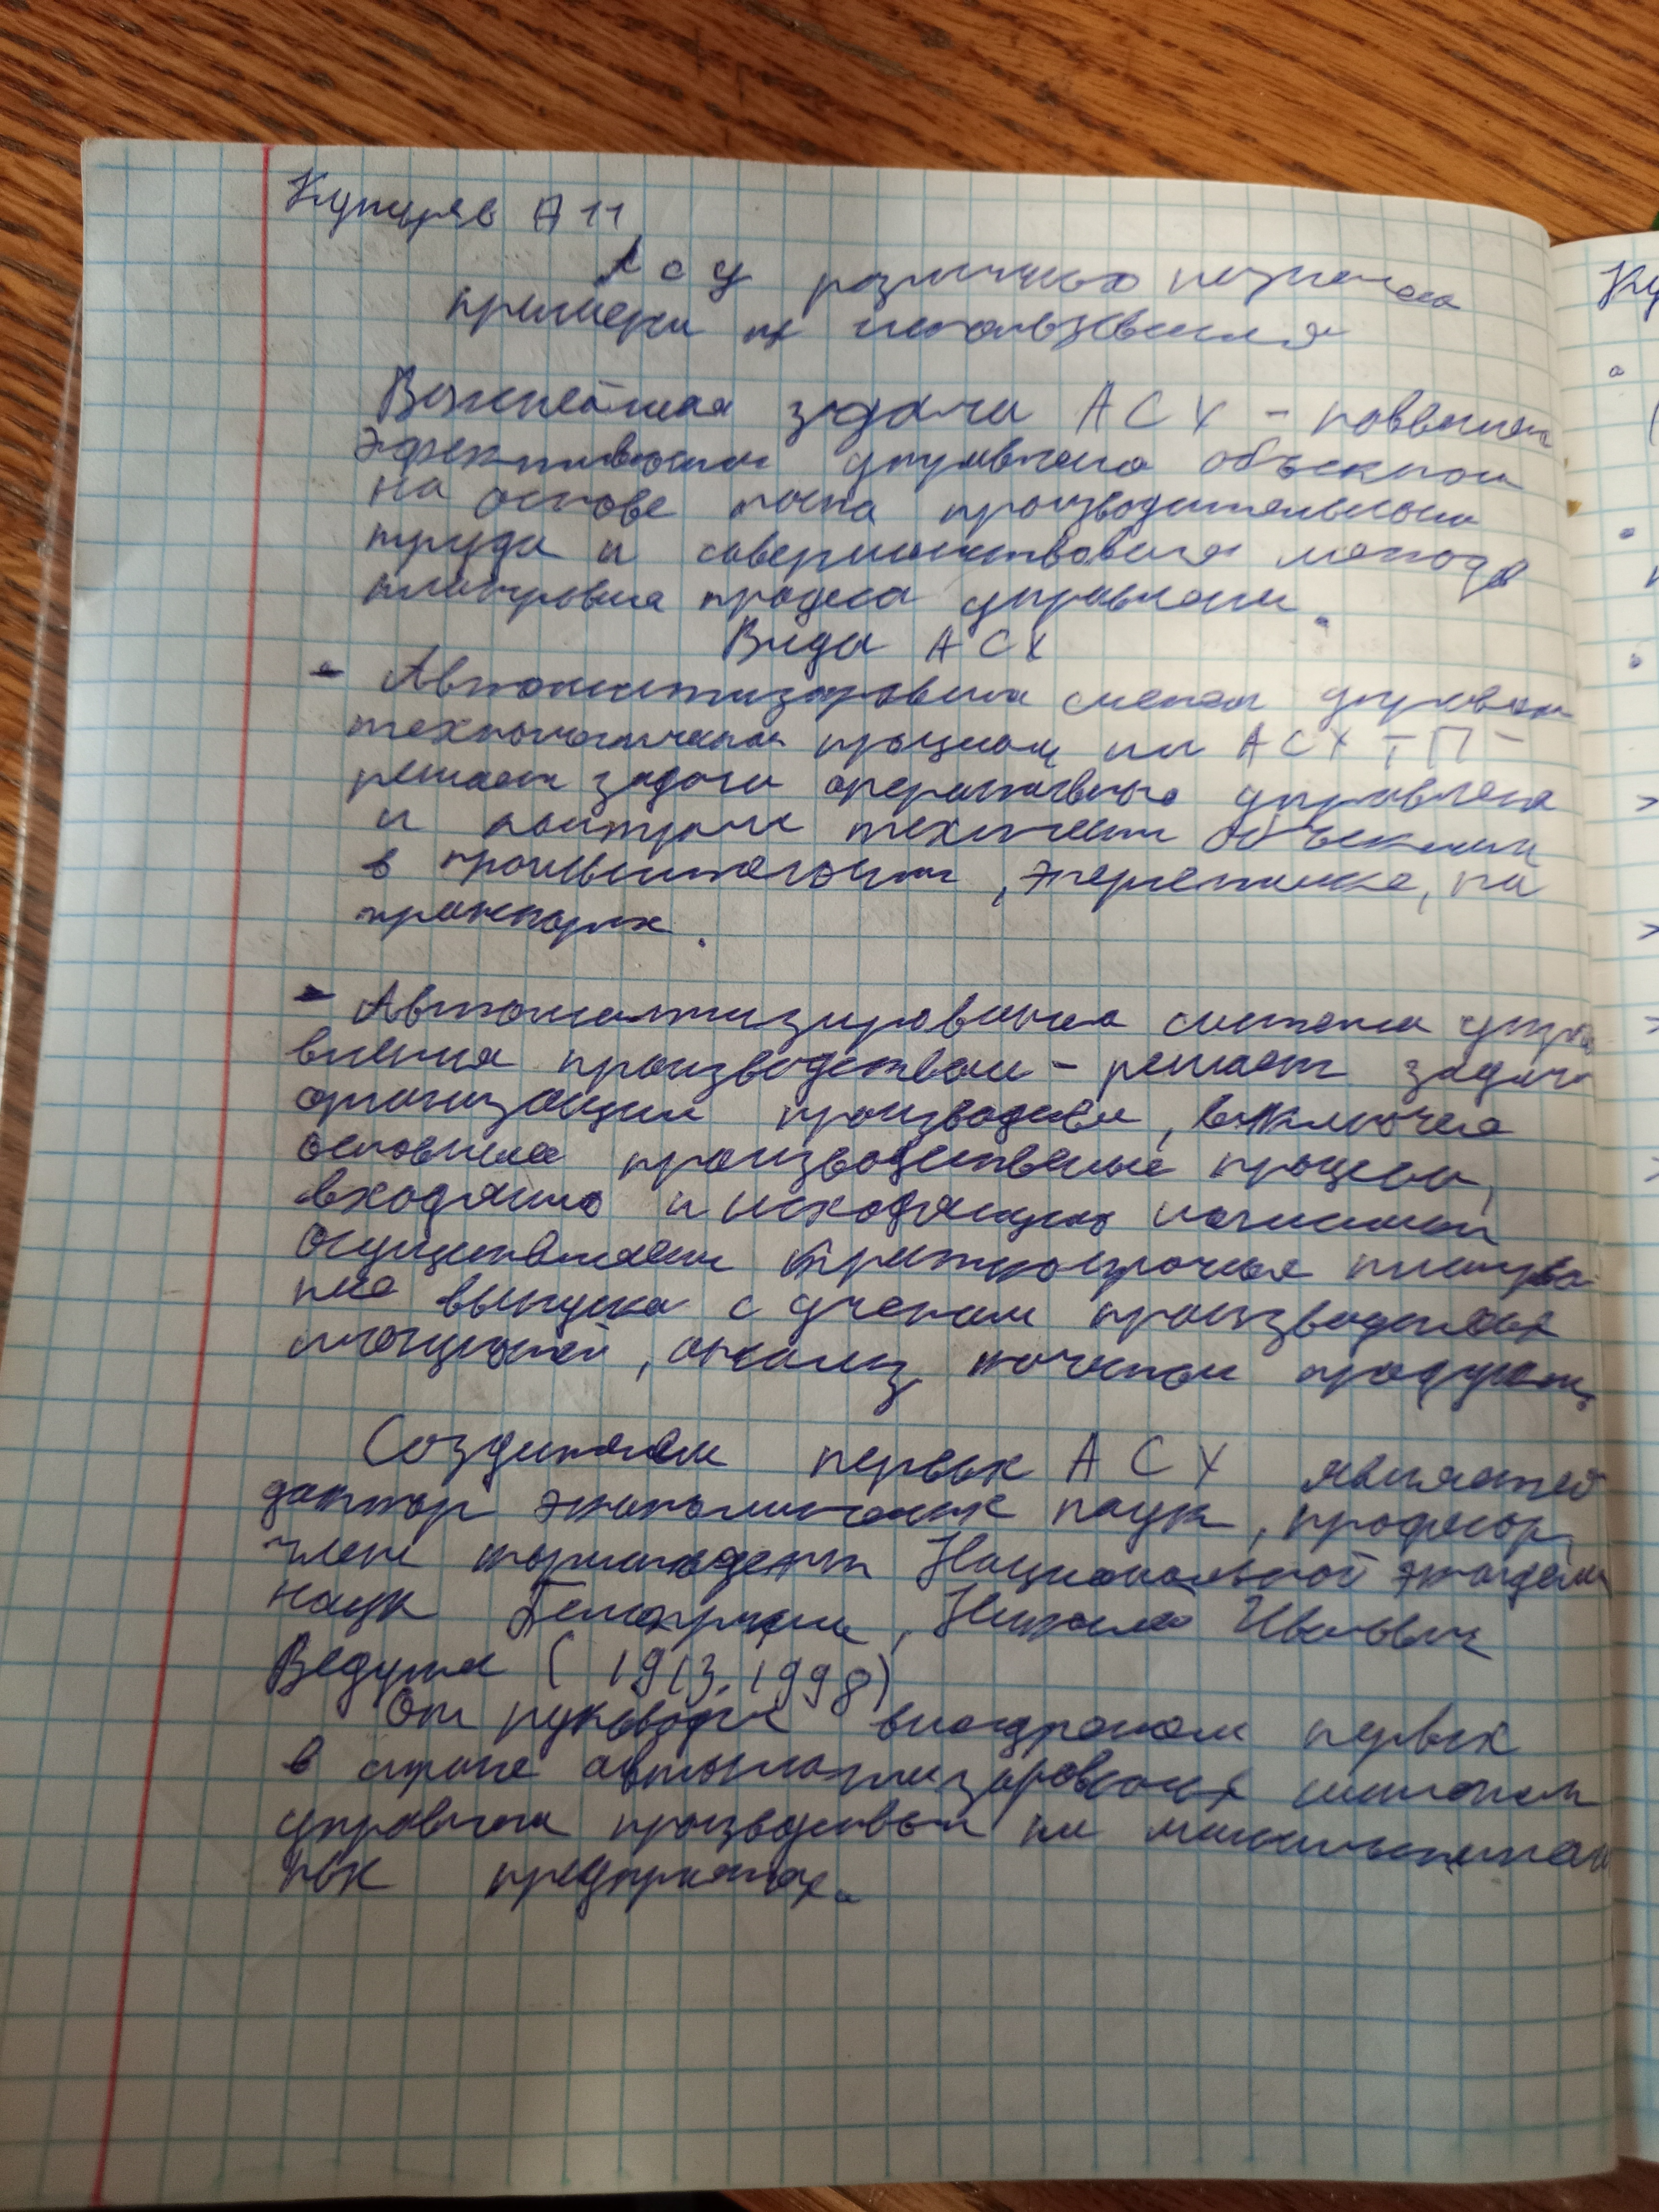 А 11
АСУ различных назначен
примеры их использования
Важнейшая задача АСУ - поввышен
эффективности управлена объектом
на основе роста производительности
труда и совершенствования метода
планирования процеса управления.
Виды АСУ
- Автоматизированая система управлен
технологическим процесом или АСУ ТП -
решает задачи оперативного управлена
и контроля техническими объектами
в промышлености, энергетике, на
транспорте.
- Автоматизированая система упра
вления производством - решает задачи
организации производства, включая
основные производственые процессы,
входящую и исходящую логистику
Осуществляет краткосрочное планирова
ние выпуска с учетом производственых
мощностей, анализ качества продукции
Создателем первых АСУ является
доктор экономических наук, професор,
член кореспондент Национальной академии
наук Белорусии, Николай Иванович
Ведута (1913, 1998)
Он руководил внедрением первых
в стране автоматизированых систем
управлена производством на машиностроитель
ных предприятиях.